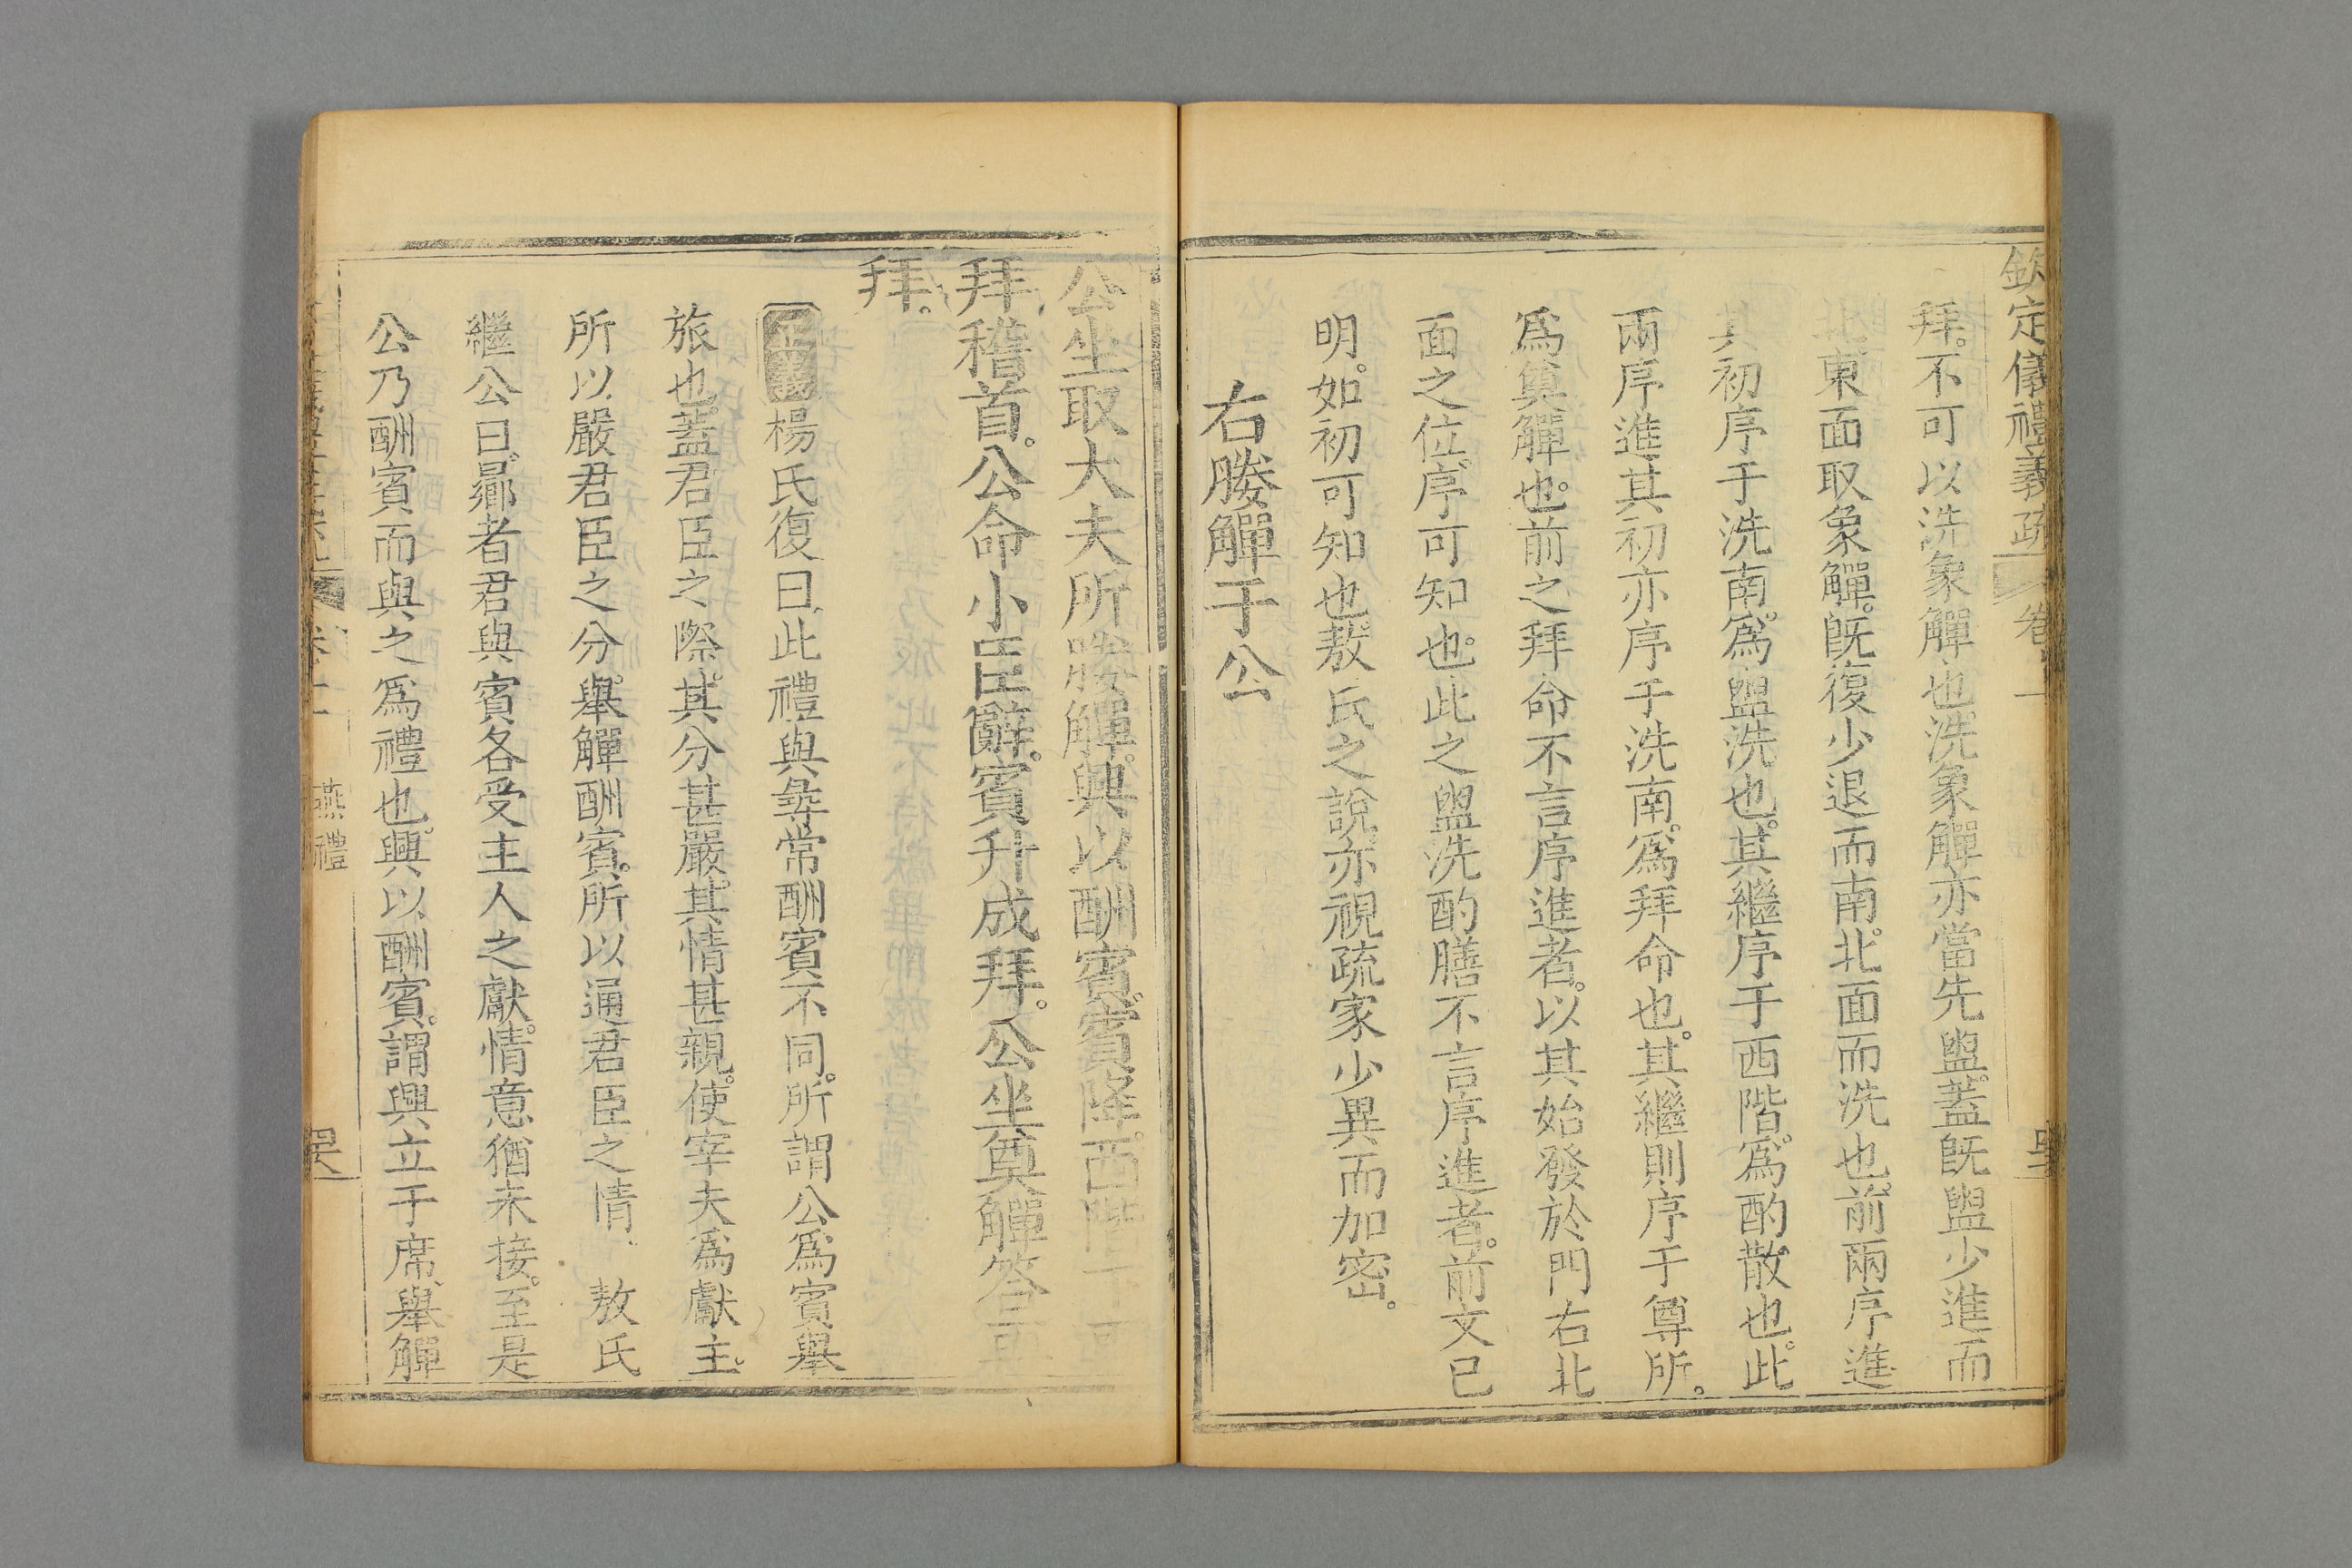 欽定儀禮義疏 卷十一
拜。不可以洗象觶也。洗象觶亦當先盥。蓋既盥少進而
東面取象觶。既復少退而南。北面而洗也。前兩序進
其初序于洗南。爲盥洗也。其繼序于西階。爲酌散也。此
兩序進其初亦序于洗南。爲拜命也。其繼則序于尊所。
爲奠觶也。前之拜命不言序進者。以其始發於門右北
面之位。序可知也。此之盥洗酌膳不言序進者。前文已
明。如初可知也。敖氏之說。亦視疏家少異而加密。
右媵觶于公
公坐取大夫所媵觶。興以酬賓。賓降。西階下再
拜稽首。公命小臣辭。賓升成拜。公坐奠觶。答再
拜。
正義 楊氏復曰。此禮與彝常酬賓不同。所謂公爲賓舉
旅也。蓋君臣之際。其分甚嚴。其情甚親。使宰夫爲獻主。
所以嚴君臣之分。舉觶酬賓。所以通君臣之情 敖氏
繼公曰。曏者君與賓各受主人之獻。情意猶未接。至是
公乃酬賓而與之爲禮也。興以酬賓。謂興立于席。舉觶
燕禮